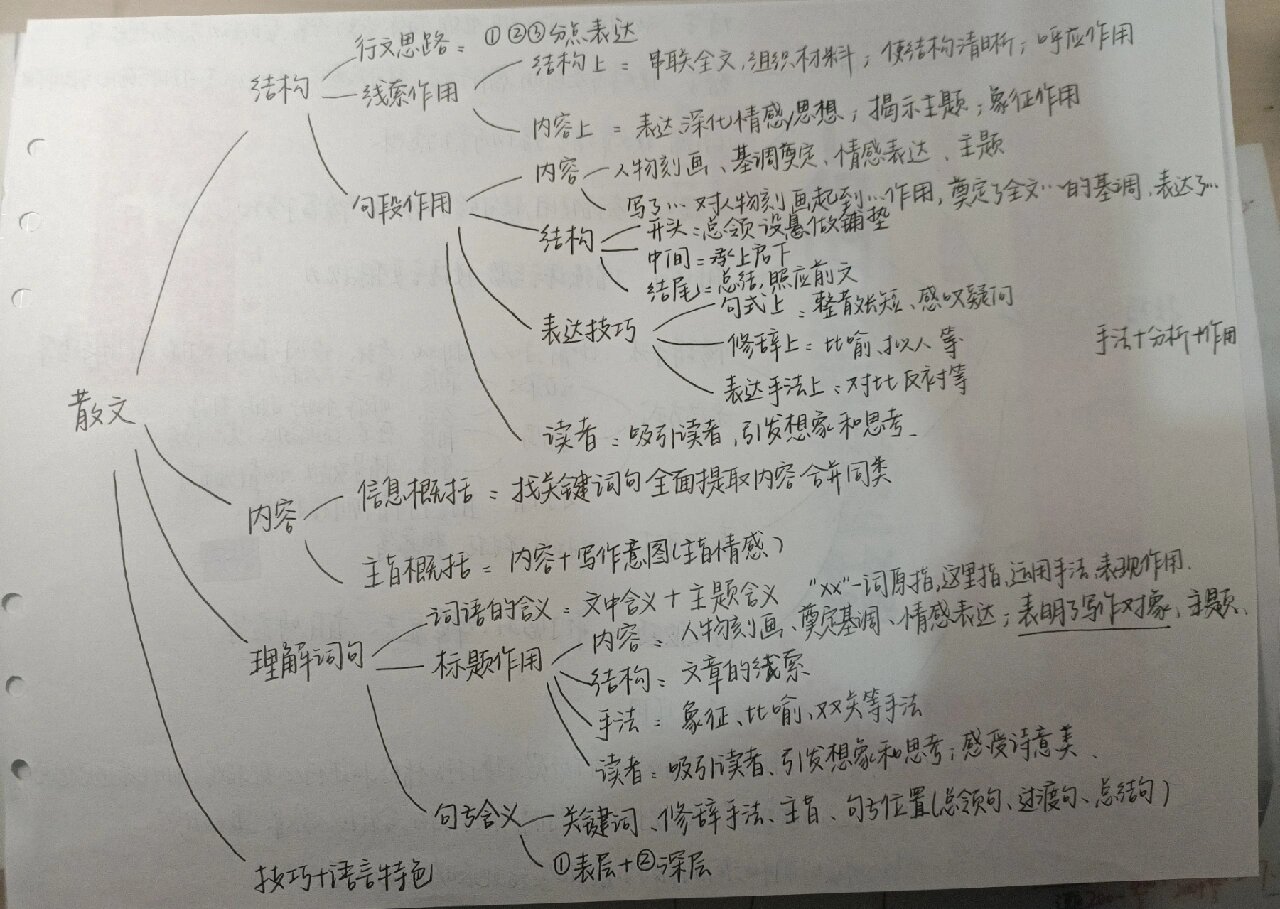 行文思路：①②③分点表达
结构
线索作用
结构上：串联全文,组织材料；使结构清晰；呼应作用
内容上：表达、深化情感/思想；揭示主题；象征作用
句段作用
内容
人物刻画、基调奠定、情感表达、主题
写了…对人物刻画起到…作用,奠定了全文…的基调,表达了…
结构
开头：总领设悬做铺垫
中间：承上启下
结尾：总结,照应前文
表达技巧
句式上：整散长短、感叹疑问
修辞上：比喻、拟人等
表达手法上：对比反衬等
手法+分析+作用
读者：吸引读者,引发想象和思考.
散文
内容
信息概括：找关键词句全面提取内容合并同类
主旨概括：内容+写作意图(主旨情感)
理解词句
词语的含义：文中含义+主题含义 "xx"一词原指,这里指,运用手法,表现作用.
标题作用
内容：人物刻画、奠定基调、情感表达；表明了写作对象,主题、
结构：文章的线索
手法：象征、比喻、双关等手法
读者：吸引读者、引发想象和思考；感受诗意美、
句子含义
关键词、修辞手法、主旨、句子位置(总领句、过渡句、总结句)
①表层+②深层
技巧+语言特色